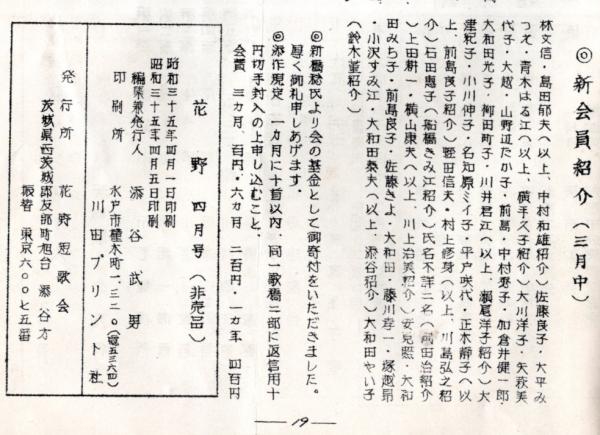 ◎新会員紹介（三月中）
林文信・島田郁夫（以上、中村和雄紹介）佐藤良子・大平み
つえ・青木はる江（以上、横手久子紹介）大川洋子・矢萩美
代子・大越・山野辺たか子・前島・中村秀子・加倉井健一郎・
大和田光子・御田町子・川井君江（以上、瀬尾洋子紹介）大
津紀子・小川伸子・名知原ミイ子・平戸咲代・正木静子（以
上、前島良子紹介）蛭田信夫・村上修身（以上、川島弘之紹
介）石田恵子（船橋きみ江紹介）氏名不詳二名（高田治紹介
）上田耕一・横山康夫（以上、川上治美紹介）安見熙・大和
田みち子・前島良子・佐藤きよ・大和田・藤川孝一・塚越昴
・小沢すみ江・大和田泰夫（以上、添谷紹介）大和田やい子
（鈴木菫紹介）
◎新橋稔氏より会の基金として御寄付をいただきました。
厚く御礼申しあげます。
◎添作規定、一カ月に十首以内、同一歌稿二部に返信用十
円切手封入の上申し込むこと、
会費 三カ月、百円・六カ月 二百円・一カ年 四百円
花野 四月号（非売品）
昭和三十五年四月一日印刷
昭和三十五年四月五日印刷
編集兼発行人 添谷武男
印刷所 水戸市備木町一、三二〇（電五三六四）
川田プリント社
発行所 花野短歌会
茨城県西茨城郎友部町旭台 添谷方
振替 東京六〇〇七五番
19